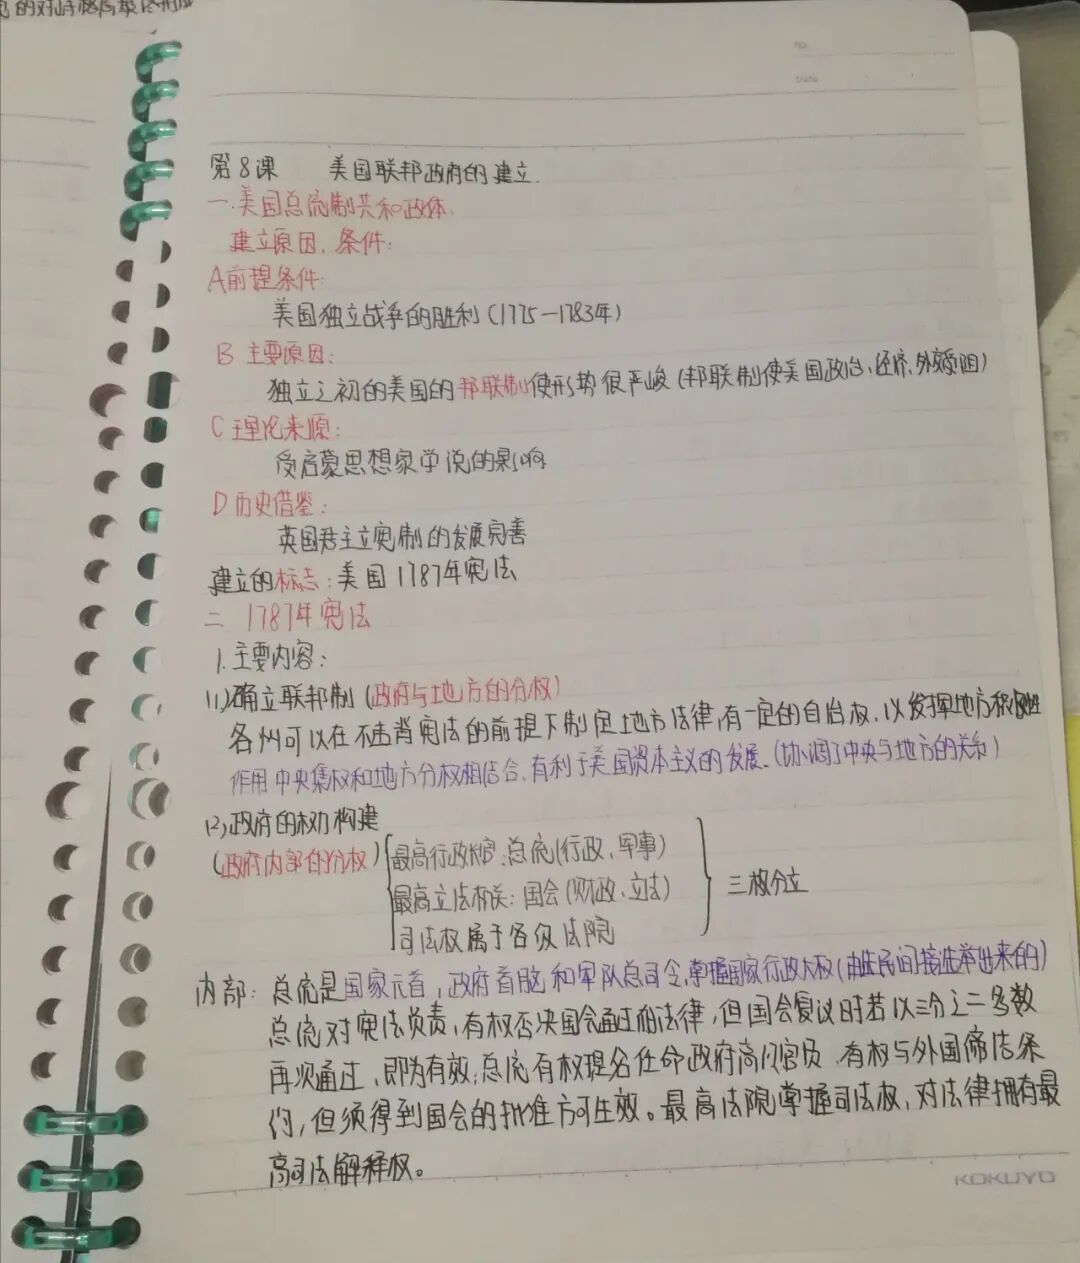 的对峙格局最终形成
第8课 美国联邦政府的建立.
一.美国总统制共和政体.
建立原因、条件:
A前提条件:
美国独立战争的胜利(1775—1783年)
B 主要原因:
独立之初的美国的邦联制使形势很严峻(邦联制使美国政治、经济、外交受阻)
C 理论来源:
受启蒙思想家学说的影响
D 历史借鉴:
英国君主立宪制的发展完善
建立的标志:美国1787年宪法
二 1787年宪法
1.主要内容:
(1)确立联邦制(政府与地方的分权)
各州可以在不违背宪法的前提下制定地方法律,有一定的自治权,以发挥地方积极性
作用 中央集权和地方分权相结合,有利于美国资本主义的发展.(协调了中央与地方的关系)
(2)政府的权力构建
(政府内部的分权)
最高行政长官:总统(行政、军事)
最高立法机关:国会(财政、立法)
司法权属于各级法院
三权分立
内部:总统是国家元首,政府首脑和军队总司令,掌握国家行政大权(由选民间接选举出来的)
总统对宪法负责,有权否决国会通过的法律,但国会复议时若以三分之二多数
再次通过,即为有效;总统有权提名任命政府高门官员,有权与外国缔结条
约,但须得到国会的批准方可生效。最高法院掌握司法权,对法律拥有最
高司法解释权。
KOKUYO